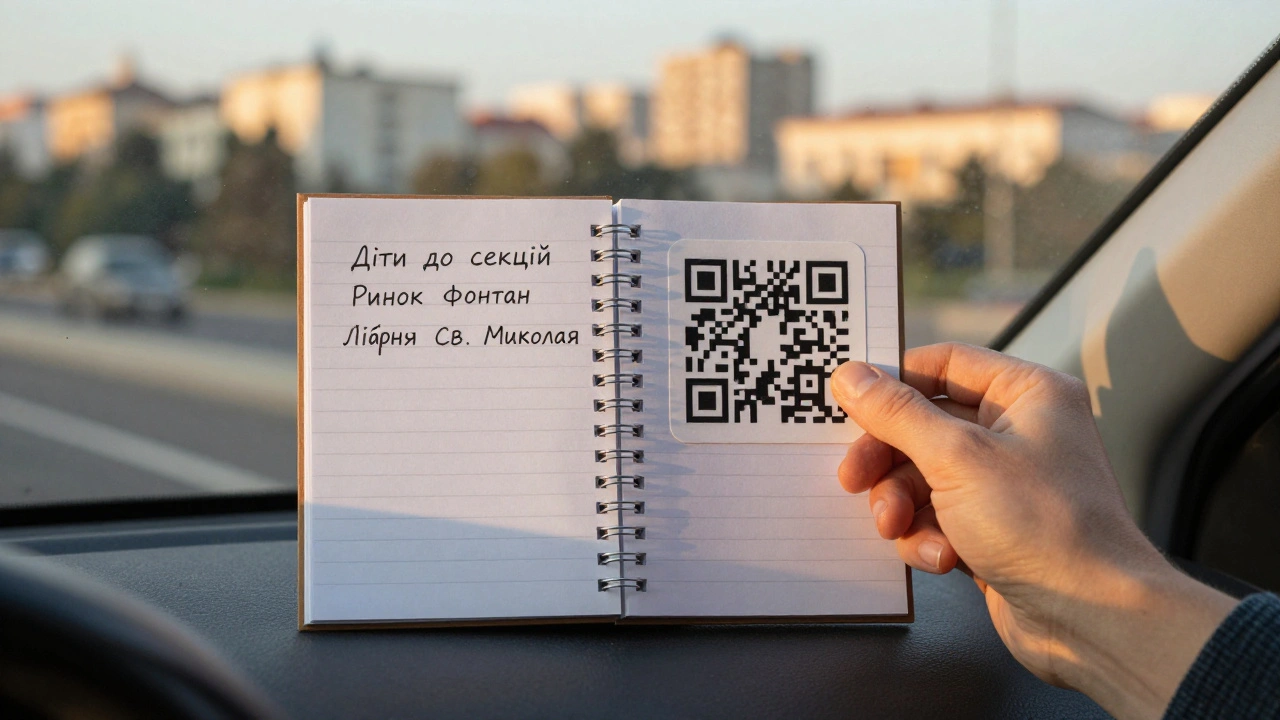 Діти до секцій
Ринок Фонтан
Лібрня Св. Миколая